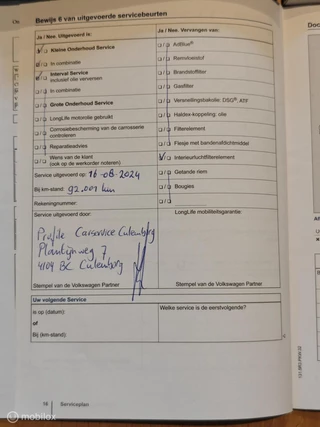 Bewijs 6 van uitgevoerde servicebeurten
Ja / Nee. Uitgevoerd is:
Kleine Onderhoud Service
In combinatie
Interval Service
inclusief olie verversen
In combinatie
Grote Onderhoud Service
LongLife motorolie gebruikt
Corrosiebescherming van de carrosserie
controleren
Reparatieadvies
Wens van de klant
(ook op de werkorder noteren)
Service uitgevoerd op: 16-08-2024
Bij km-stand: 92.001 km
Rekeningnummer:
Service uitgevoerd door:
Profile Carservice Culemborg
Plantijnweg 7
4104 BC Culemborg
Stempel van de Volkswagen Partner
Ja / Nee. Vervangen van:
AdBlue®
Remvloeistof
Brandstoffilter
Gasfilter
Versnellingsbakolie: DSG®, ATF
Haldex-koppeling: olie
Filterelement
Flesje met bandenafdichtmiddel
Interieurluchtfilterelement
Getande riem
Bougies
LongLife mobiliteitsgarantie:
Stempel van de Volkswagen Partner
Uw volgende Service
is op (datum):
of
Bij (km-stand):
Welke service is de eerstvolgende?
16
Serviceplan
mobilox